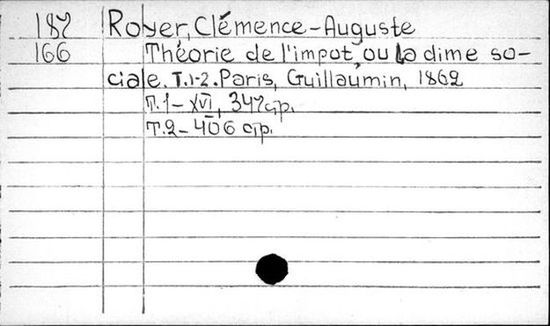 187 Royer, Clémence-Auguste
166 Théorie de l'impot, ou la dime so-
ciale. T.1-2. Paris, Guillaumin, 1862
Т.1 - XVI, 347 стр.
Т.2 - 406 стр.